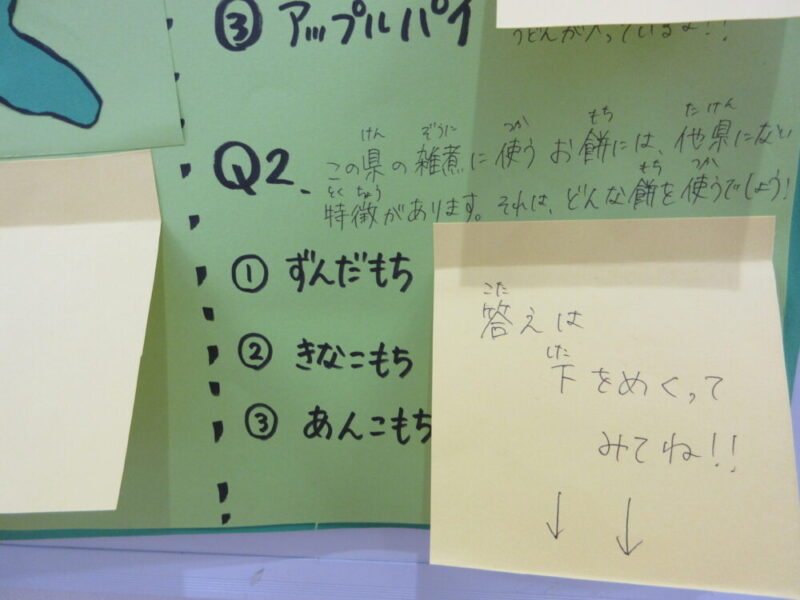 ③ アップルパイ
うどんが入っているよ!!
Q2. この県の雑煮に使うお餅には、他県にない
特徴があります。それは、どんな餅を使うでしょう!
① ずんだもち
② きなこもち
③ あんこもち
答えは
下をめくって
みてね!!
↓ ↓